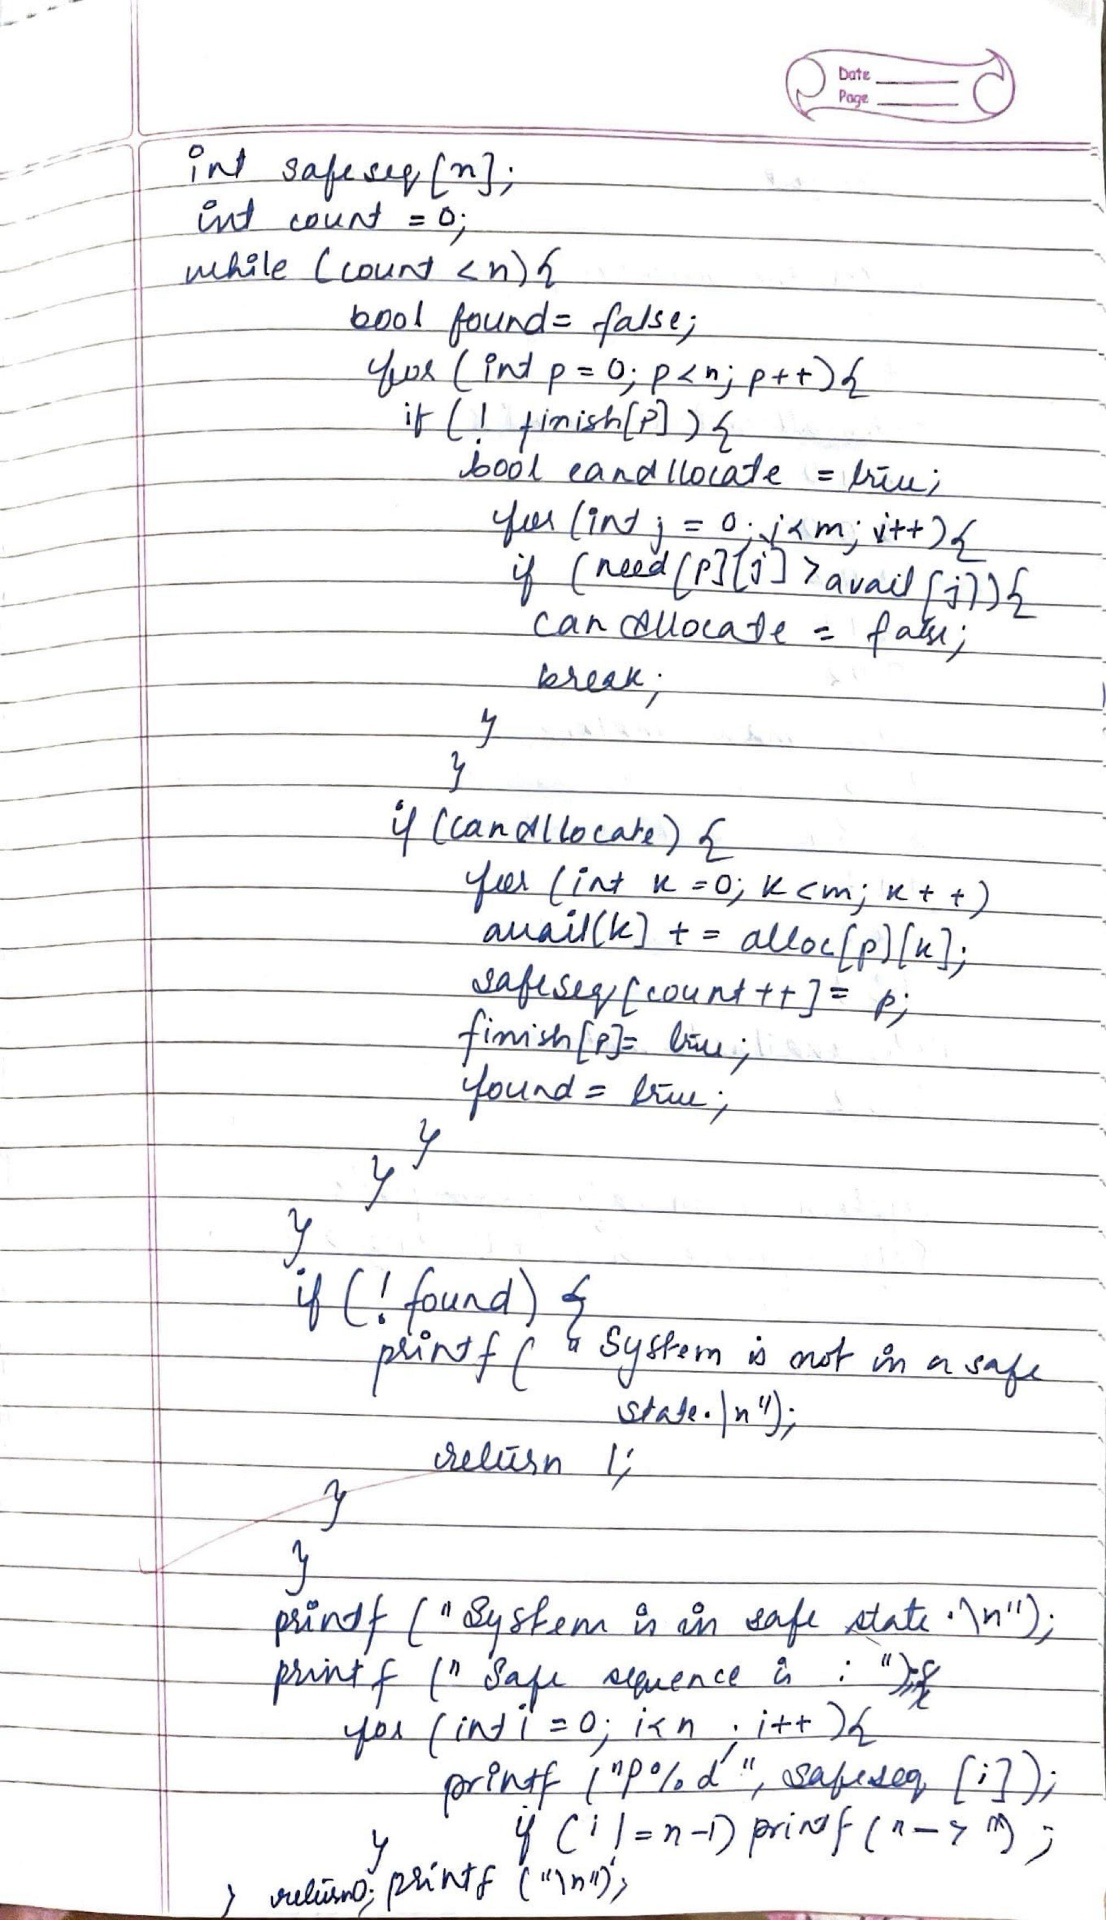 Date
Page
int safeseq[n];
int count = 0;
while (count <n){
bool found = false;
for (int p = 0; p<n; p++){
if (! finish[p]) {
bool canAllocate = true;
for (int j = 0; j<m; j++){
if (need[p][j] > avail[j]){
canAllocate = false;
break;
}
}
if (canAllocate) {
for (int k = 0; k<m; k++)
avail[k] += alloc[p][k];
safeseq[count++] = p;
finish[p] = true;
found = true;
}
}
}
if (! found) {
printf ("System is not in a safe
state.\n");
return 1;
}
}
printf ("System is in safe state.\n");
printf ("Safe sequence is : ");
for (int i = 0; i<n ; i++){
printf ("P%d", safeseq [i]);
if (i != n-1) printf ("->");
}
} return 0; printf ("\n");